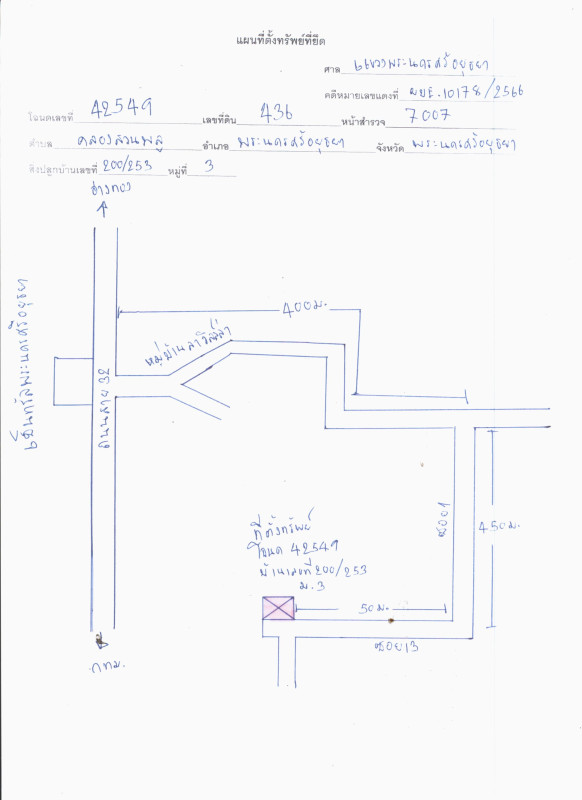 แผนที่ตั้งทรัพย์ที่ยึด
ศาล แขวงพระนครศรีอยุธยา
คดีหมายเลขแดงที่ ผบE.10178/2566
โฉนดเลขที่ 42549 เลขที่ดิน 436 หน้าสำรวจ 7007
ตำบล คลองสวนพลู อำเภอ พระนครศรีอยุธยา จังหวัด พระนครศรีอยุธยา
สิ่งปลูกบ้านเลขที่ 200/253 หมู่ที่ 3
อ่างทอง
400ม.
หมู่บ้านลาวิลล่า
เซ็นทรัลพระนครศรีอยุธยา
ถนนสาย 32
ซอย1
450ม.
ที่ตั้งทรัพย์
โฉนด 42549
บ้านเลขที่ 200/253
ม.3
50ม.
ซอย13
กทม.